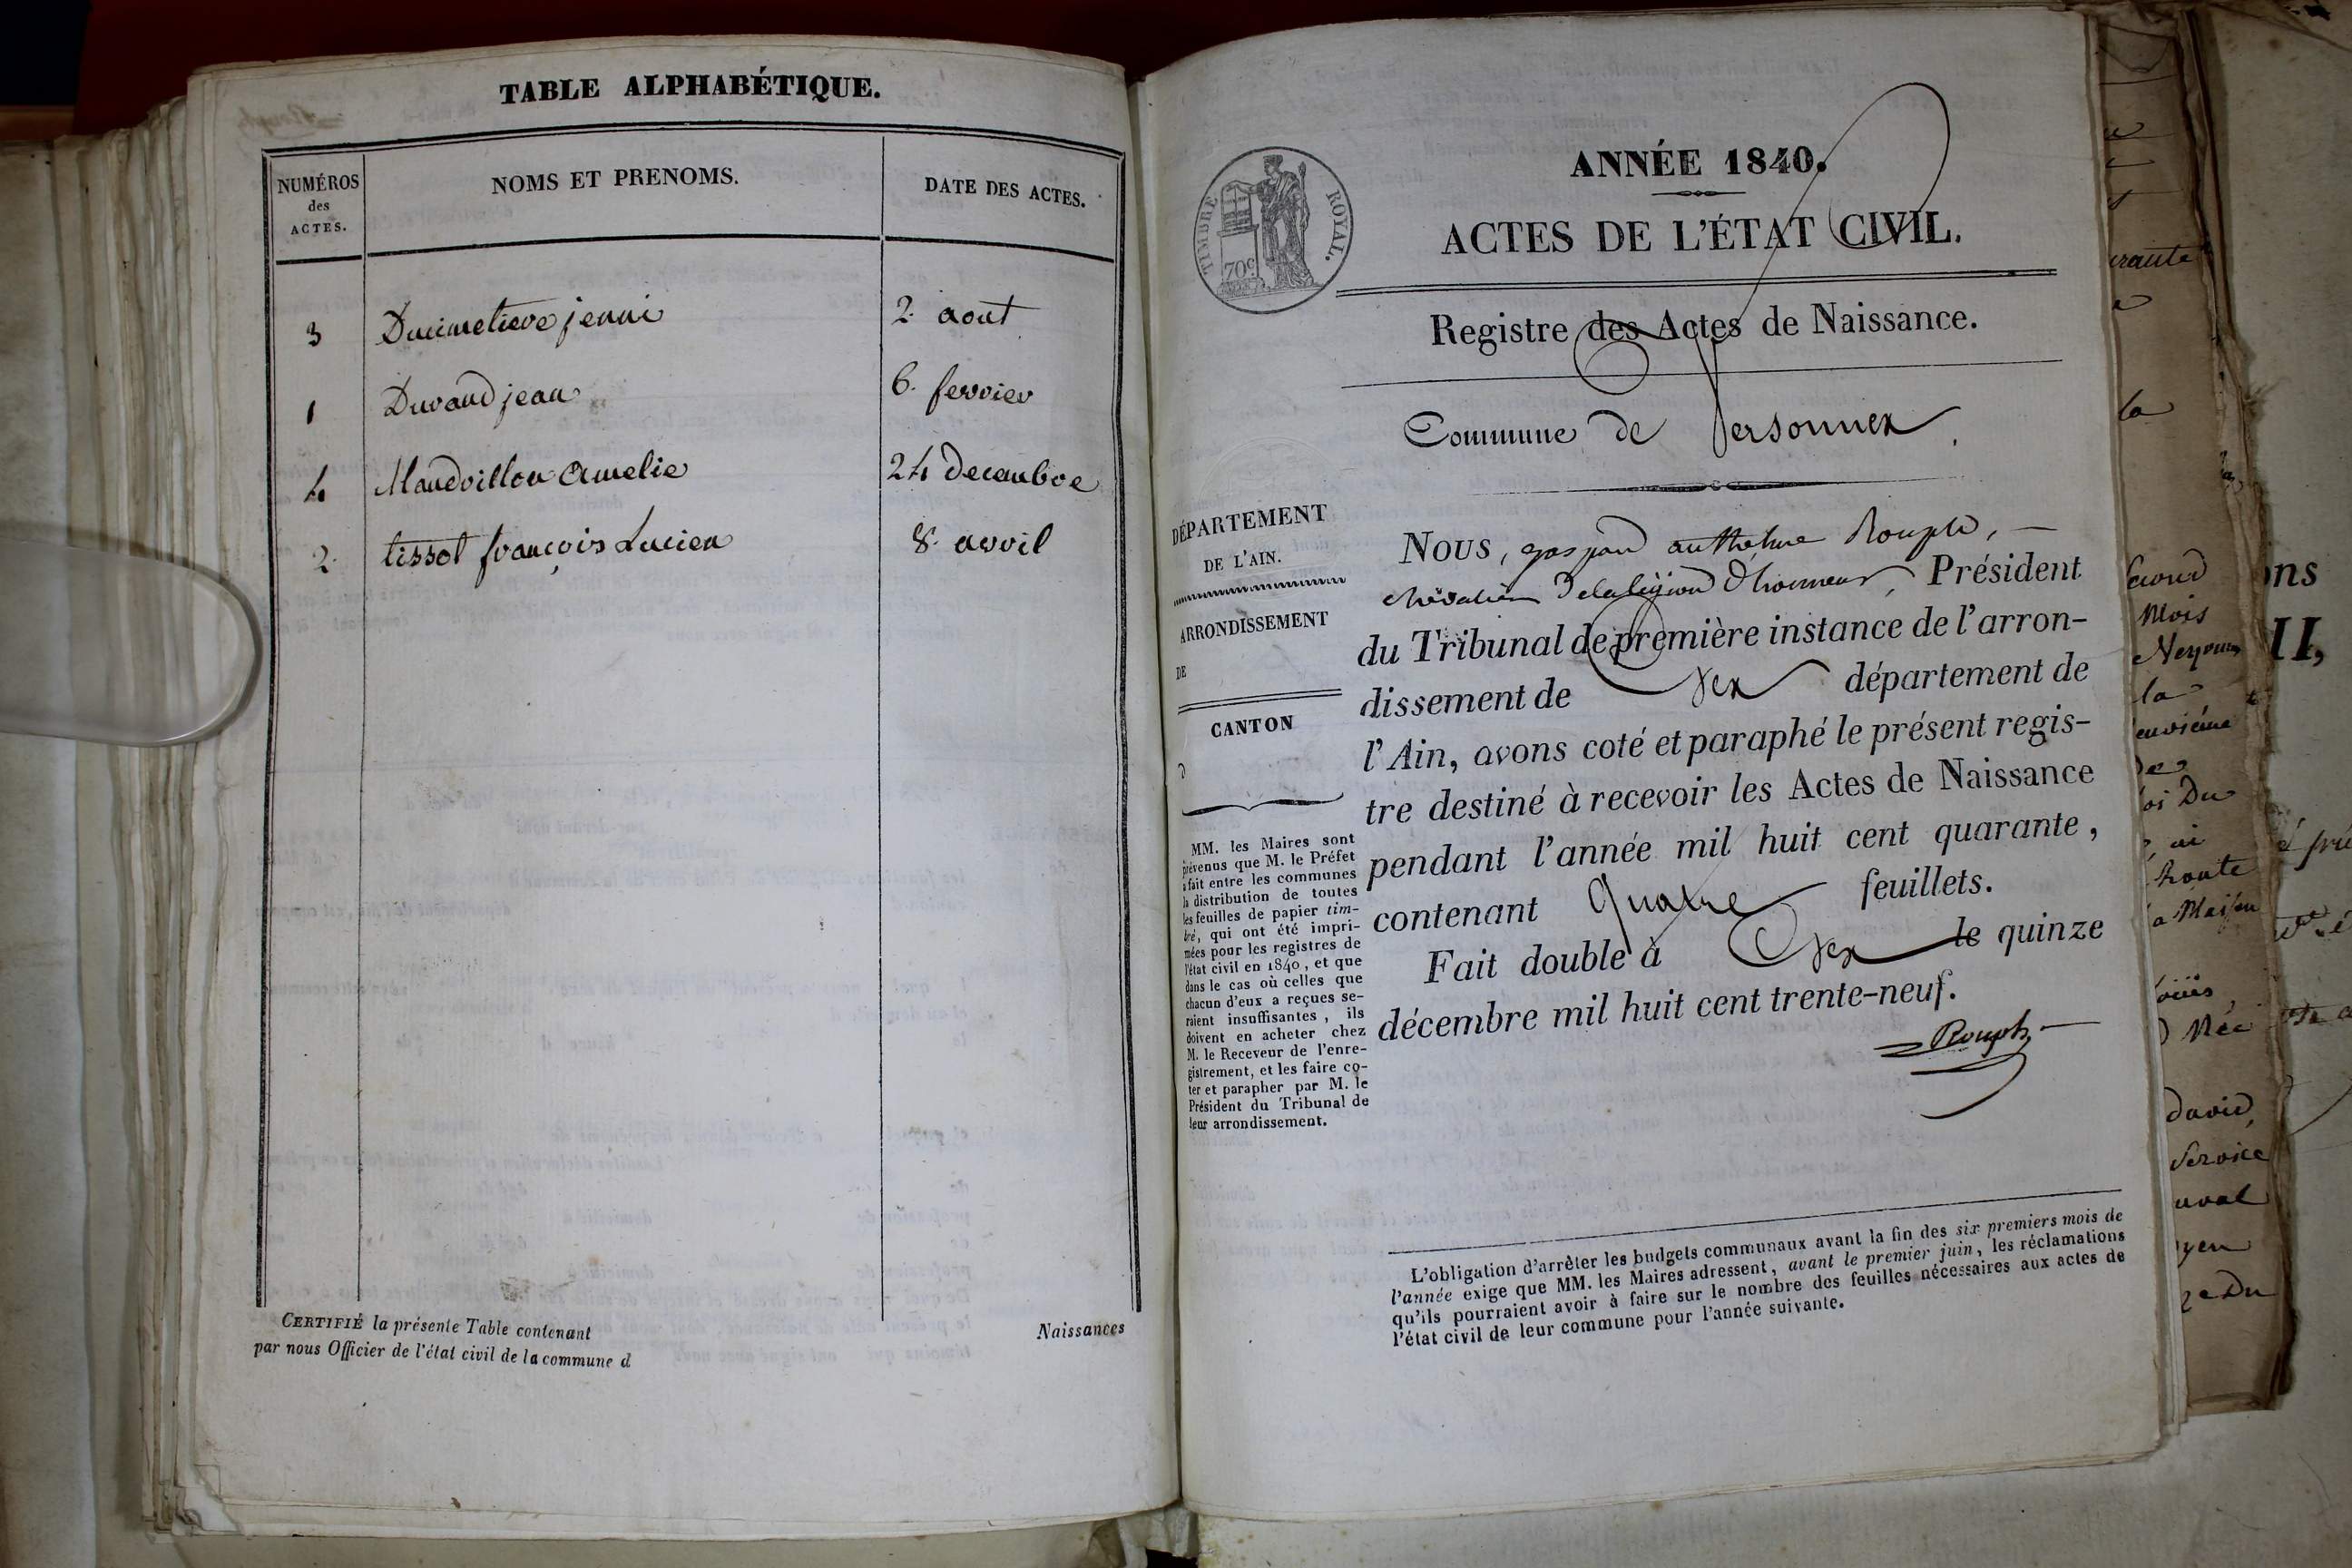 TABLE ALPHABÉTIQUE.
NUMÉROS
des
ACTES.
NOMS ET PRENOMS.
DATE DES ACTES.
3 Ducimetiere jenni 2. aout
1 Durand jean 6. fevrier
4 Mandrillon Amelie 24 decembre
2. tissot françois Lucien 8. avril
CERTIFIÉ la présente Table contenant Naissances
par nous Officier de l'état civil de la commune d
TIMBRE ROYAL.
70c
ANNÉE 1840.
ACTES DE L'ÉTAT CIVIL.
Registre des Actes de Naissance.
Commune de Versonnex
DÉPARTEMENT
DE L'AIN.
ARRONDISSEMENT
DE
CANTON
D
MM. les Maires sont
prévenus que M. le Préfet
a fait entre les communes
la distribution de toutes
les feuilles de papier tim-
bré, qui ont été impri-
mées pour les registres de
l'état civil en 1840, et que
dans le cas où celles que
chacun d'eux a reçues se-
raient insuffisantes, ils
doivent en acheter chez
M. le Receveur de l'enre-
gistrement, et les faire co-
ter et parapher par M. le
Président du Tribunal de
leur arrondissement.
Nous, gaspard anthelme Rouph,
chevalier de la légion d'honneur, Président
du Tribunal de première instance de l'arron-
dissement de Gex département de
l'Ain, avons coté et paraphé le présent regis-
tre destiné à recevoir les Actes de Naissance
pendant l'année mil huit cent quarante,
contenant quatre feuillets.
Fait double à Gex le quinze
décembre mil huit cent trente-neuf.
Rouph
L'obligation d'arrêter les budgets communaux avant la fin des six premiers mois de
l'année exige que MM. les Maires adressent, avant le premier juin, les réclamations
qu'ils pourraient avoir à faire sur le nombre des feuilles nécessaires aux actes de
l'état civil de leur commune pour l'année suivante.
la
Mois
la
Du
Route
a Maison
Née
david,
Service
Du
ons
II,